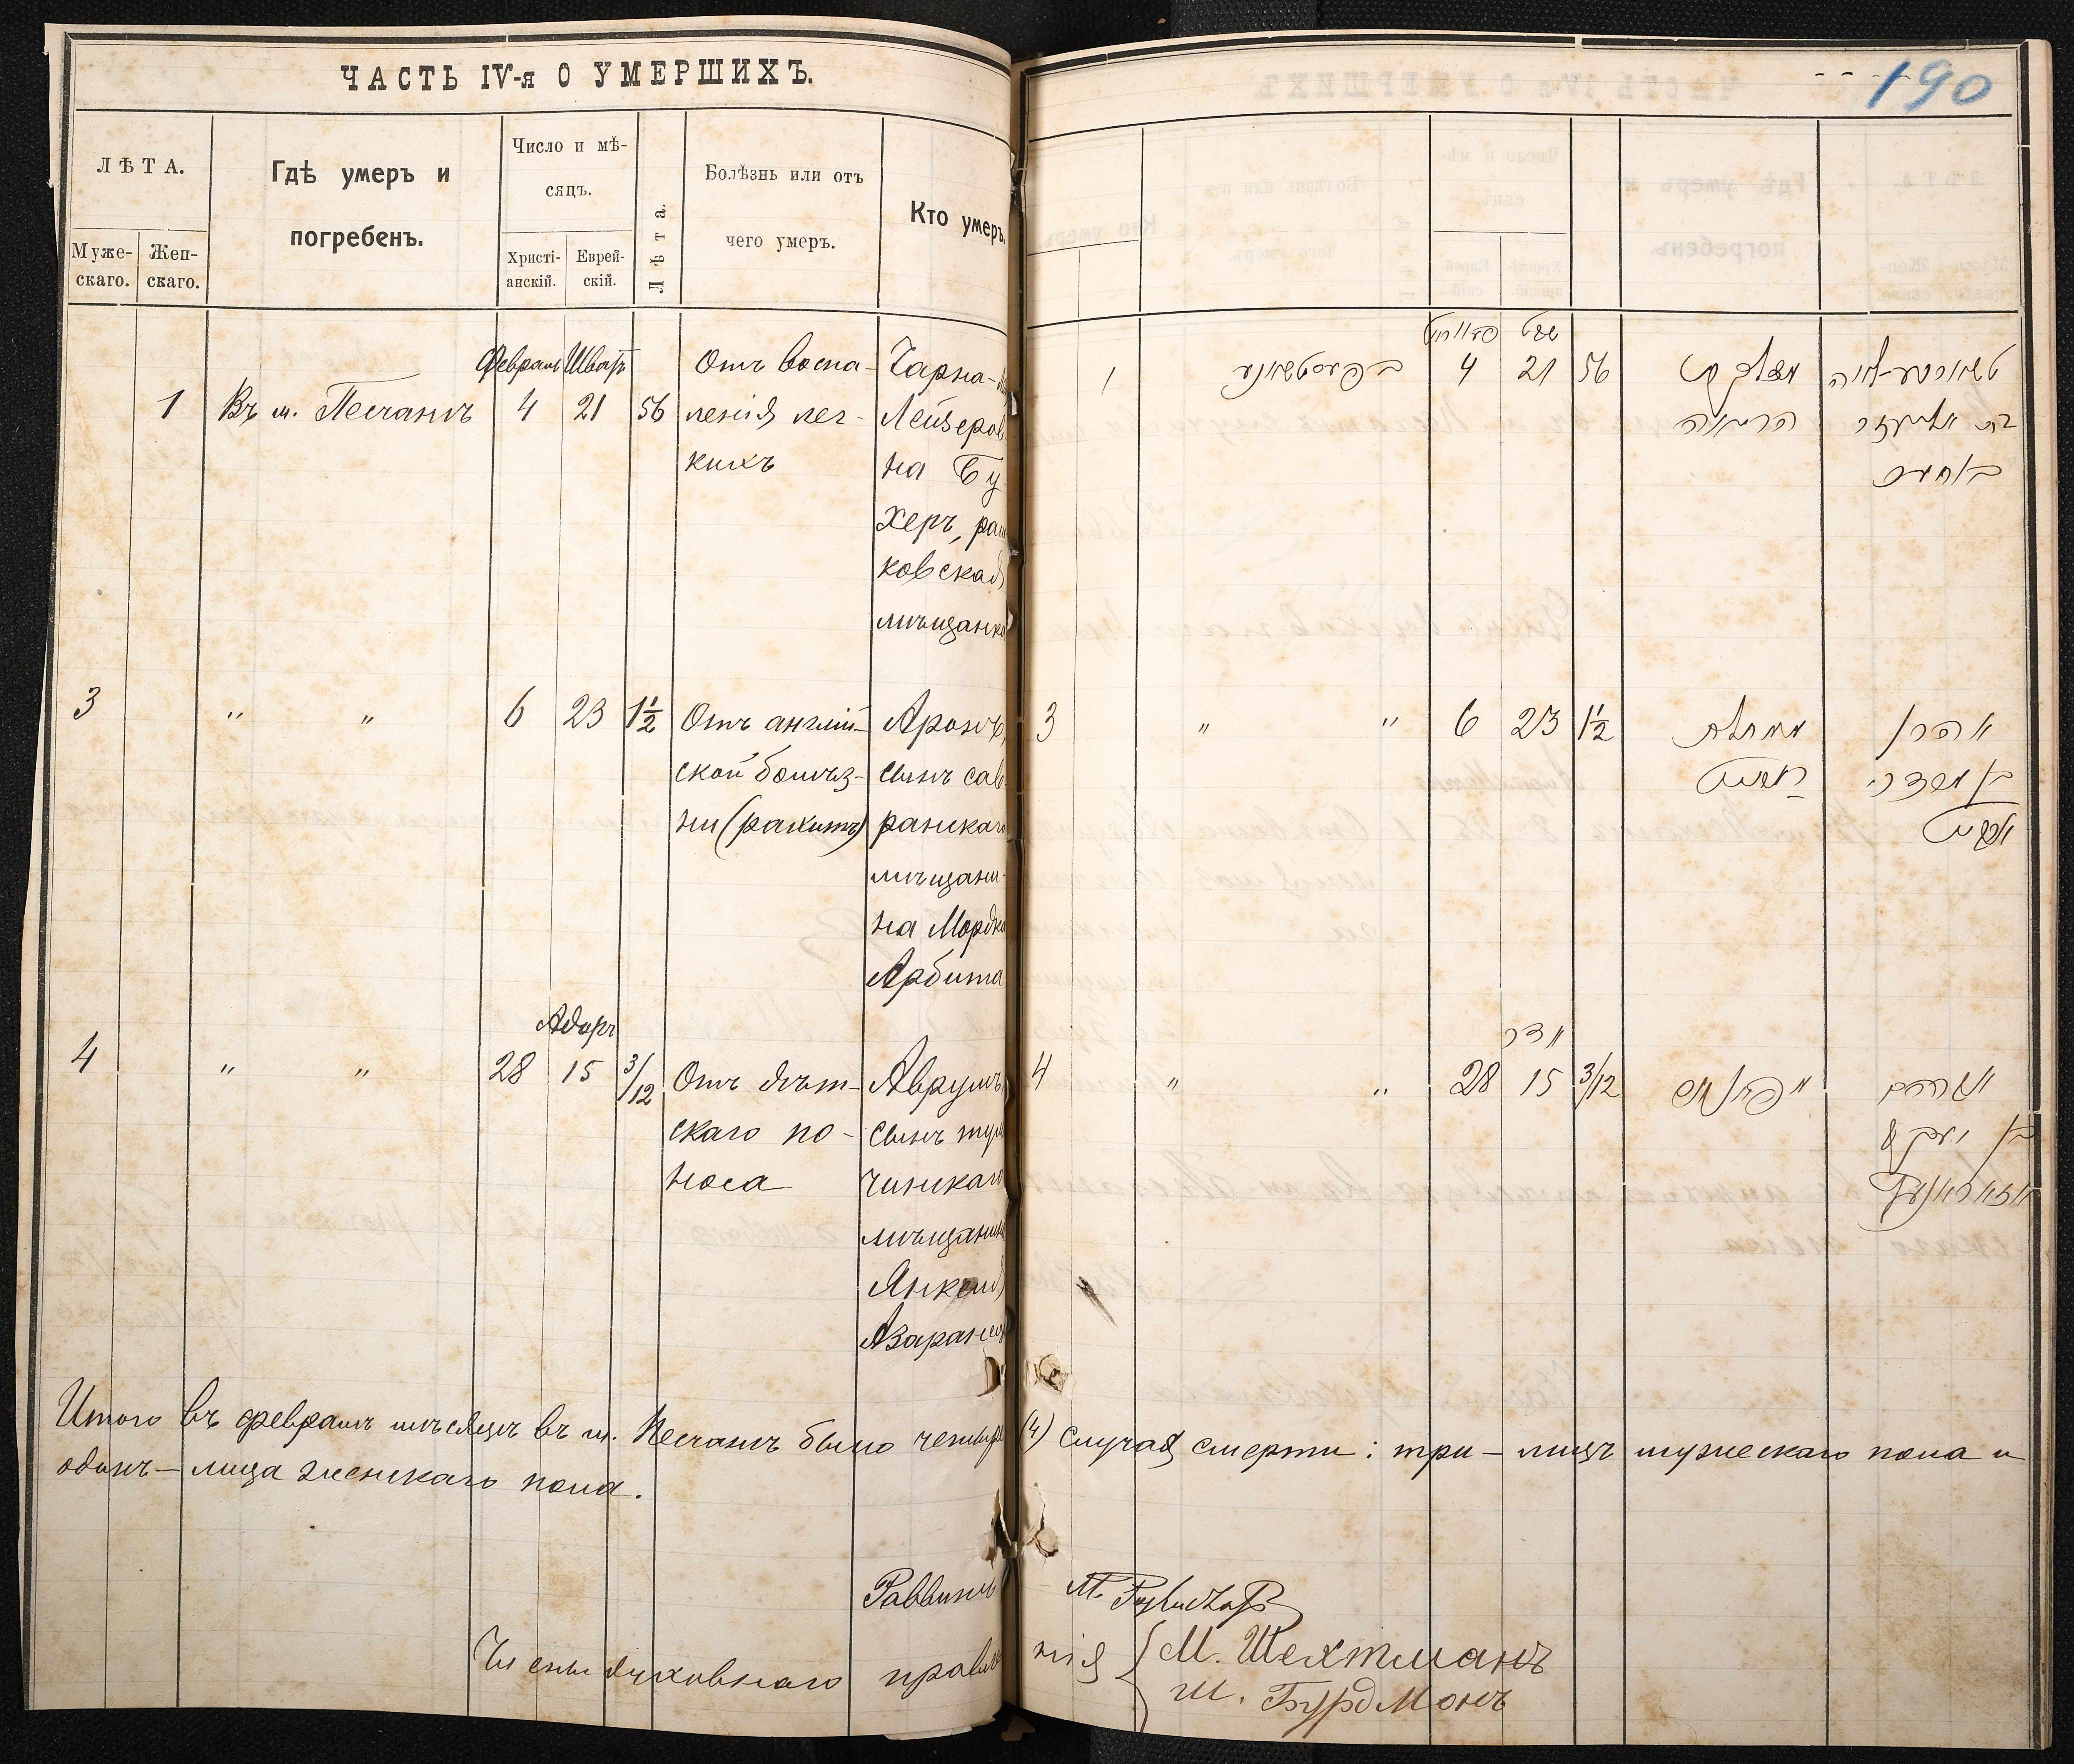 ЧАСТЬ IV-я О УМЕРШИХЪ.
190
ЛѢТА.
Муже-
скаго.
Жен-
скаго.
Гдѣ умеръ и
погребенъ.
Число и мѣ-
сяцъ.
Христі-
анскій.
Еврей-
скій.
Лѣта.
Болѣзнь или отъ
чего умеръ.
Кто умеръ.
Февраль Шватъ
1 Въ м. Песчанѣ 4 21 56
Отъ воспа-
ленія лег-
кихъ
Чарна-
Лейзеров
на Бу
херъ, раш
ковская
мѣщанка
3 " " 6 23 1½
Отъ англій-
ской болѣз-
ни (рахитъ)
Аронъ,
сынъ сав
ранскаго
мѣщани-
на Мордка
Арбита
Адаръ
4 " " 28 15 3/12
Отъ дѣт-
скаго по-
носа
Аврумъ,
сынъ туль
чинскаго
мѣщанина
Янкеля
Азаранца
שבט
1 4 21 56
הריאה
3 " " 6 23 1½
אהרן
בן מרדכי
אדר
4 " " 28 15 3/12
אברהם
בן יעקב
Итого въ февралѣ мѣсяцѣ въ м. Песчанѣ было четыре (4) случая смерти: три – лицъ мужескаго пола и
одинъ – лица женскаго пола.
Раввинъ
Члены духовнаго правле нія { М. Шехтманъ
Ш. Бурдманъ